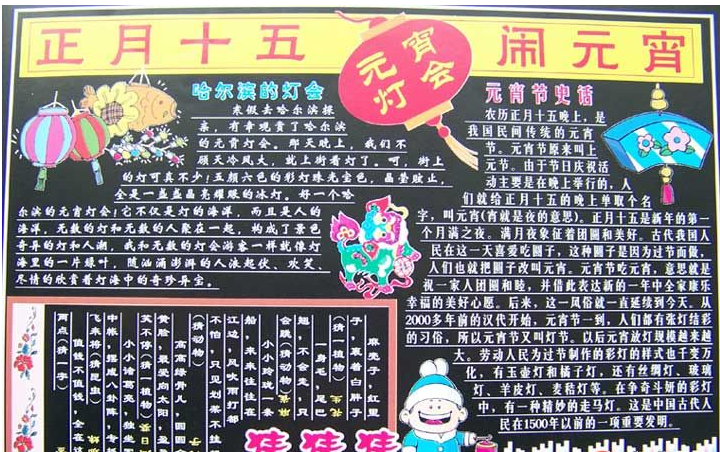 正月十五
元宵
灯会
闹元宵
哈尔滨的灯会
来假去哈尔滨探
亲，有幸观赏了哈尔滨
的元宵灯会。那天晚上，我们不
顾天冷风大，就上街看灯了。呵，街上
的灯可真不少！五颜六色的彩灯珠光宝色，晶莹
全是一盏盏晶亮耀眼的冰灯。好一个哈
尔滨的元宵灯会！它不仅是灯的海洋，而且是人的
海洋，无数的灯和无数的人聚在一起，构成了景色
奇异的灯和人潮，我和无数的灯会游客一样就像灯
海里的一片绿叶，随汹涌澎湃的人浪起伏、欢笑、
尽情的欣赏着灯海中的奇珍异宝。
元宵节史话
农历正月十五晚上，是
我国民间传统的元宵
节。元宵节原来叫上
元节。由于节日庆祝活
动主要是在晚上举行的，人
们就给正月十五的晚上单取个名
字，叫元宵(宵就是夜的意思)。正月十五是新年的第一
个月满之夜。满月夜象征着团圆和美好。古代我国人
民在这一天喜爱吃圆子，这种圆子是因为过节而做，
人们也就把圆子改叫元宵。元宵节吃元宵，意思就是
祝一家人团圆和睦，并借此表达新的一年中全家康乐
幸福的美好心愿。后来，这一风俗就一直延续到今天。从
2000多年前的汉代开始，元宵节一到，人们都有张灯结彩
的习俗，所以元宵节又叫灯节。以后元宵放灯规模越来越
大。劳动人民为过节制作的彩灯的样式也千变万
化，有玉壶灯和橘子灯，还有丝绸灯、玻璃
灯、羊皮灯、麦秸灯等，在争奇斗妍的彩灯
中，有一种精妙的走马灯。这是中国古代人
民在1500年以前的一项重要发明。
麻壳子，红里
子，裹着白胖子
(猜一植物)花生
一身毛，尾巴
翘，不会走，只
会跳(猜动物)麻雀
小小玲珑一条
船，来来往往在
江边，风吹雨打都
不怕，只见划桨不挂
(猜动物)
高高绿骨儿，圆圆
黄脸，最爱向太阳，盈
笑不停(猜一植物)
小小诸葛亮，独坐
中帐，摆成八卦阵，专
飞来将(猜昆虫)
值钱不值钱，全在这
两点(猜一字)
猜猜猜